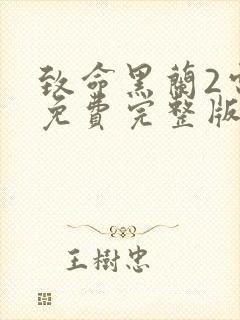 致命黑蘭2
免費完整版
王樹忠